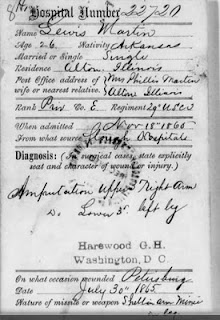 Hospital Number 22720
Name Lewis Martin
Age 26. Nativity Arkansas
Married or Single Single
Residence Alton Illinois
Post Office address of Mrs Phillis Martin
wife or nearest relative. Alton Illinois
Rank Priv Co. E. Regiment 29 USCI
When admitted Nov 18" 1865
From what source Hospital
Diagnosis: (In surgical cases, state explicitly
seat and character of wound or injury.)
Amputation Upper Right Arm
Do Lower 3d left leg
Harewood G. H.
Washington, D C
On what occasion wounded Petersburg
Date July 30" 1865
Nature of missile or weapon Shell in arm Minie
leg